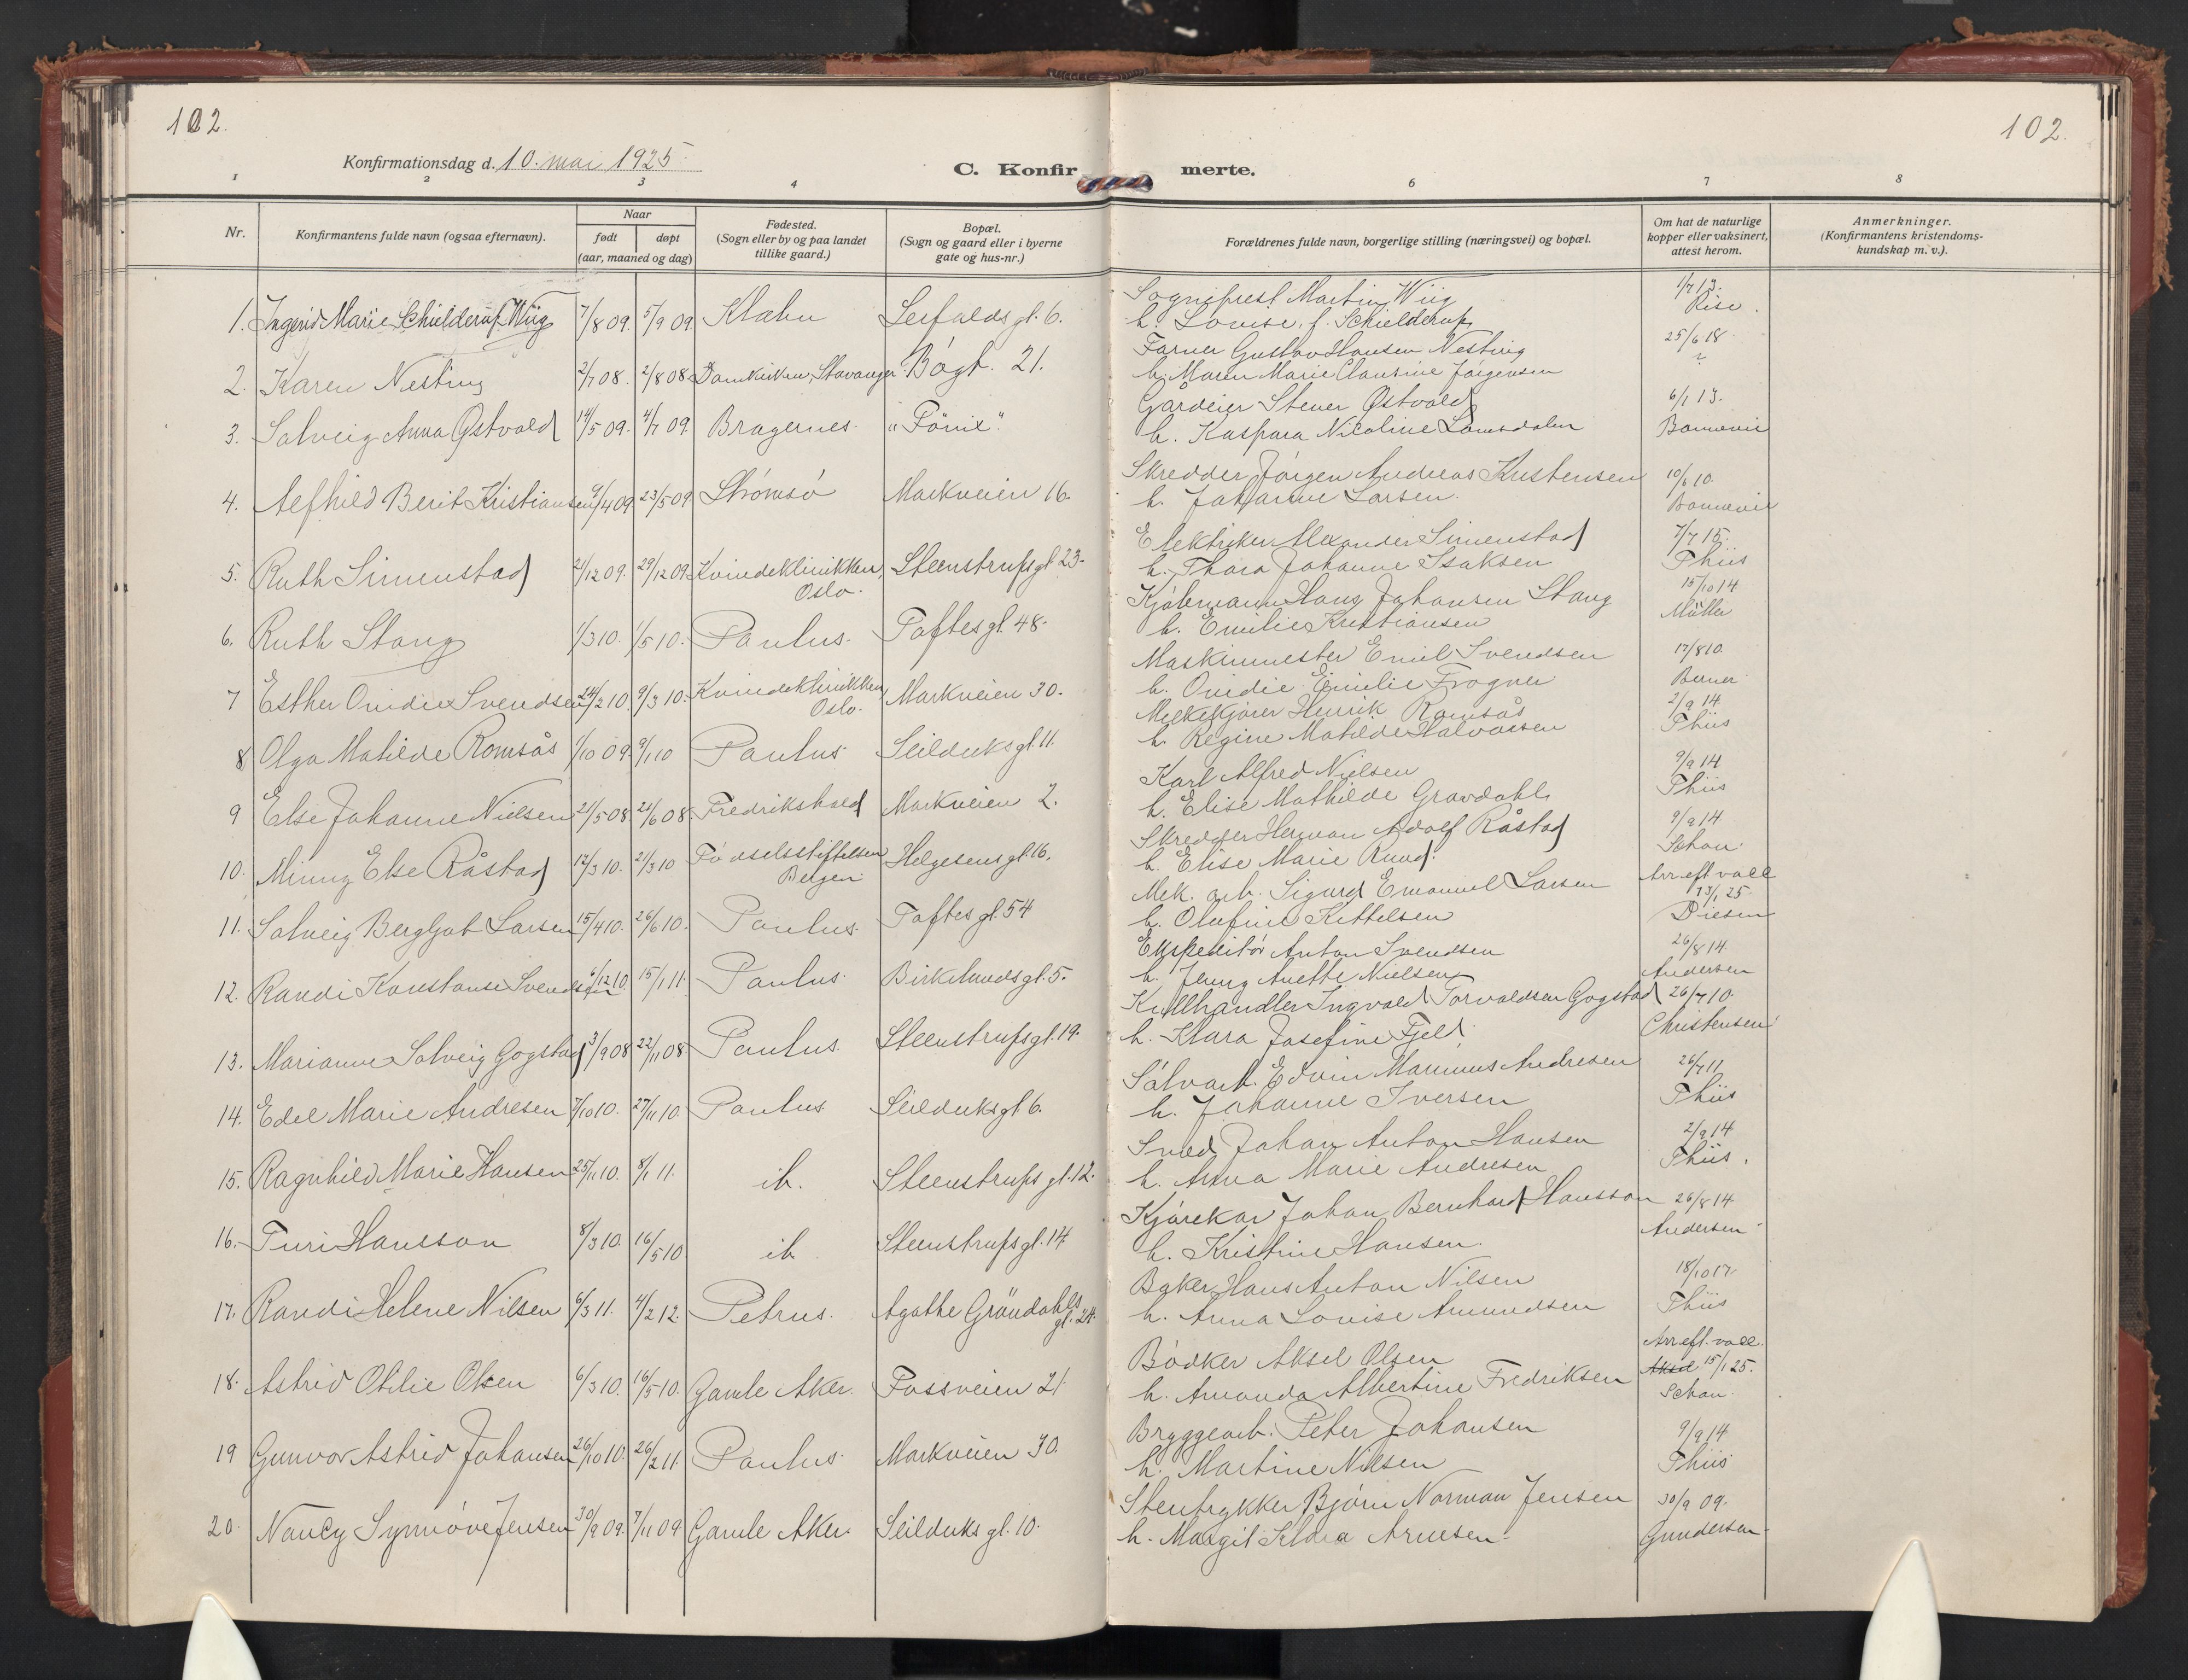 102.
102.
Konfirmationsdag d. 10. mai 1925.
C. Konfirmerte.
1 2 3 4 6 7 8
Nr.
Konfirmantens fulde navn (ogsaa efternavn).
Naar
født
døpt
(aar, maaned og dag)
Fødested.
(Sogn eller by og paa landet
tillike gaard.)
Bopæl.
(Sogn og gaard eller i byerne
gate og hus-nr.)
Forældrenes fulde navn, borgerlige stilling (næringsvei) og bopæl.
Om hat de naturlige
kopper eller vaksinert,
attest herom.
Anmerkninger.
(Konfirmantens kristendoms-
kundskap m. v.).
1. Ingerid Marie Schielderup Wiig 7/8 09. 5/9 09 Seifalds gt. 6.
Sogneprest Martin Wiig 1/7 13.
h. Lovise f. Schielderup Riise.
2. Karen Nesting 2/7 08. 2/8 08 Domkirken, Stavanger Bøgt. 21.
Farver Gustav Hansen Nesting 25/6 18.
h. Maren Marie Clausine Jørgensen ?
3. Solveig Anna Østvold 14/5 09. 4/7 09. Bragernes. "Fönix".
Gårdeier Stener Østvold 6/1 13.
h. Kaspara Nicoline Lomsdalen Bonnevie
4. Alfhild Berit Kristiansen 9/4 09. 23/5 09 Strömsö Markveien 16.
Skredder Jörgen Andreas Kristensen 10/6 10.
h. Johanne Larsen. Bonnevie
5. Ruth Simenstad 21/12 09. 29/12 09 Kvindeklinikken, Oslo. Steenstrupsgt 23.
Elektriker Alexander Simenstad 7/7 15.
h. Thora Johanne Isaksen Thiis
6. Ruth Stang 1/3 10. 1/5 10. Paulus. Toftes gt. 48.
Kjølemann Hans Johansen Stang 15/10 14
h. Emilie Kristiansen Müller
7 Esther Ovidie Svendsen 24/2 10. 9/3 10. Kvindeklinikken, Oslo. Markveien 30.
Maskinmester Emil Svendsen 17/8 10
h. Ovidie Emilie Frogner Berner
8 Olga Matilde Romsås 1/10 09. 9/1 10 Paulus. Seilduksgt. 11.
Melkekjører Henrik Romsås 2/9 14.
h. Regine Matilde Halvorsen Thiis
9 Else Johanne Nielsen 21/5 08 21/6 08 Fredrikshald Markveien 2.
Karl Alfred Nielsen 9/9 14
h. Elise Mathilde Gravdahl Thiis
10. Minny Else Råstad 12/3 10. 21/3 10 Fødselsstiftelsen Bergen Helgesens gt. 16.
Skredder Herman Adolf Råstad 9/9 14
h. Elise Marie Ruud. Schou.
11. Solveig Bergljot Larsen 15/4 10. 26/6 10. Paulus. Toftes gt. 54
Mek. arb. Sigurd Emanuel Larsen Arr eft. vacc. 13/1 25.
h. Olufine Kittelsen Diesen
12. Randi Konstanse Svendsen 6/12 10. 15/1 11. Paulus. Birkelunds gt. 5.
Ekspeditör Anton Svendsen 26/8 14.
h. Jenny Anette Nielsen Andersen
13. Marianne Solveig Gogstad 3/9 08 22/11 08. Paulus. Steenstrupsgt. 19.
Kullhandler Ingvald Torvaldsen Gogstad 26/7 10.
h. Klara Josefine Fjeld. Christensen
14. Edel Marie Andresen 7/10 10. 27/11 10. Paulus. Seilduksgt 6.
Sölvarb. Edvin Marinius Andresen 26/7 11
h. Johanne Iversen Thiis
15. Ragnhild Marie Hansen 25/11 10. 8/1 11. ib. Steenstrups gt. 12.
Smed Johan Anton Hansen 2/9 14
h. Anna Marie Andresen Thiis.
16. Turi Hansson 8/3 10. 16/5 10. ib Steenstrupsgt. 14.
Kjørekar Johan Bernhard Hansson 26/8 14
h. Kristine Hansen. Andersen
17. Randi Helene Nilsen 6/3 11. 4/2 12. Petrus. Agathe Gröndahls gt. 24.
Baker Hans Anton Nilsen 18/10 17
h. Anna Lovise Amundsen Thiis
18. Astrid Otilie Olsen 6/3 10. 16/5 10. Gamle Aker. Fossveien 21.
Bödker Aksel Olsen Arr eft. vacc.
h. Amanda Albertine Fredriksen 15/1 25. Schou.
19 Gunvor Astrid Johansen 26/10 10. 26/2 11. Paulus. Markveien 30.
Bryggearb. Peter Johansen 9/9 14
h. Martine Nilsen Thiis
20. Nancy Synnöve Jensen 30/9 09. 7/11 09 Gamle Aker. Seilduks gt. 10.
Stentrykker Bjørn Norman Jensen 30/9 09.
h. Margit Klara Arnesen. Gundersen